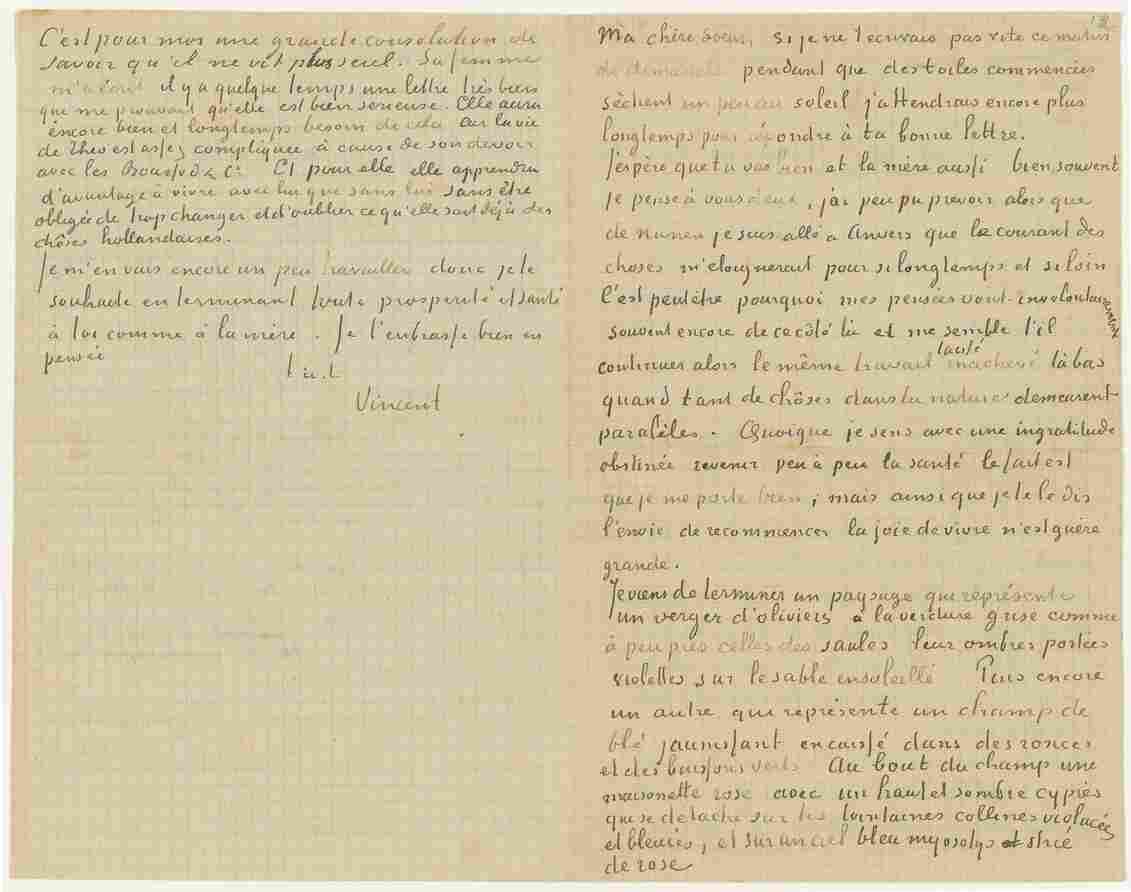 C'est pour moi une grande consolation de
savoir qu'il ne vit plus seul. Sa femme
m'a écrit il y a quelque temps une lettre très bien
que me prouvait qu'elle est bien serieuse. Elle aura
encore bien et longtemps besoin de cela car la vie
de Theo est assez compliquée à cause de son devoir
avec les Boussod & Cº. Et pour elle elle apprendra
d'avantage à vivre avec lui que sans lui sans être
obligée de trop changer et d'oublier ce qu'elle sait déjà des
chôses hollandaises.
Je m'en vais encore un peu travailler donc je te
souhaite en terminant toute prosperité et santé
à toi comme à la mère. Je t'embrasse bien en
pensée
t. à. t.
Vincent
Ma chère soeur, si je ne t'ecrivais pas vite ce matin
pendant que des toiles commencées
sèchent un peu au soleil j'attendrais encore plus
longtemps pour répondre à ta bonne lettre.
J'espère que tu vas bien et la mère aussi bien souvent
je pense à vous deux, j'ai peu pu prevoir alors que
de Nunen je suis allé a Anvers que le courant des
choses m'eloignerait pour si longtemps et si loin
C'est peutêtre pourquoi mes pensées vont involontairement
souvent encore de ce côté là et me semble t'il
laissé
continuer alors le même travail inachevé là bas
quand tant de chôses dans la nature demeurent
paralèles. Quoique je sens avec une ingratitude
obstinée revenir peu à peu la santé le fait est
que je me porte bien; mais ainsi que je te le dis
l'envie de recommencer la joie de vivre n'est guère
grande.
Je viens de terminer un paysage qui représente
un verger d'oliviers à la verdure grise comme
à peu près celles des saules leur ombres portées
violettes sur le sable ensoleillé Puis encore
un autre qui représente un champ de
blé jaunissant encaissé dans des ronces
et des buissons verts Au bout du champ une
maisonette rose avec un haut et sombre cyprès
qui se detache sur les lointaines collines violacées
et bleuies, et sur un ciel bleu myosotys et strié
de rose